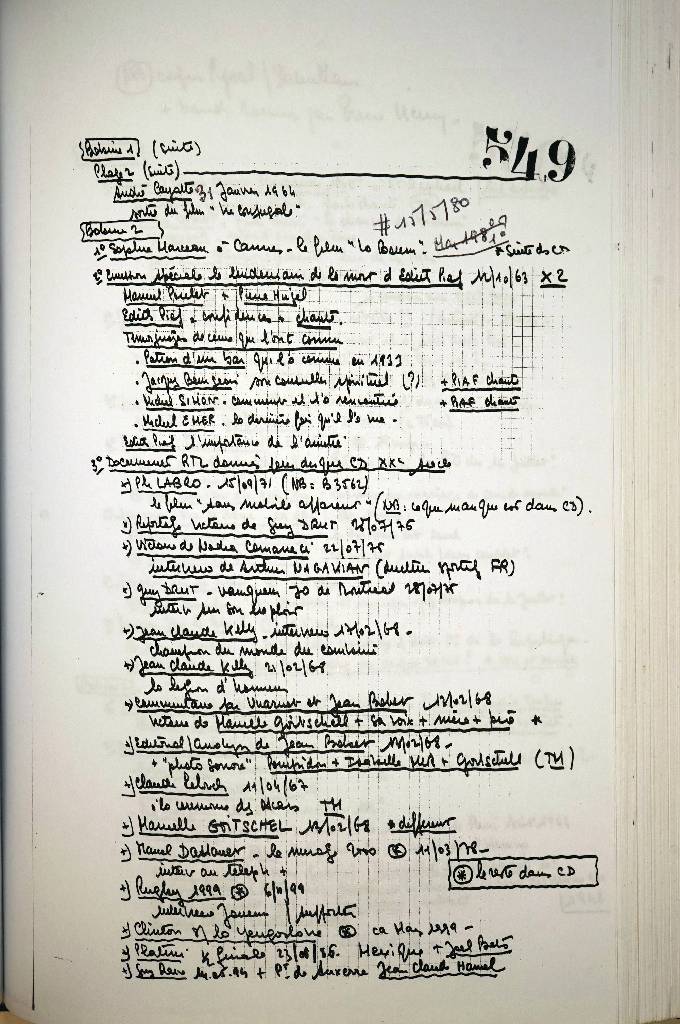 549
Bobine 1 (suite)
Plage 2 (suite)
André Cayatte 31 Janvier 1964
sortie du film "Vie conjugale"
# 15/5/80
Bobine 2
1° Sophie Marceau à Cannes - le film "La Boum". Mai 198 * Suite du CD
2° Emission spéciale le lendemain de la mort d'Edith Piaf 12/10/63 X2
Manuel Poulet + Pierre Hiégel
Edith Piaf + confidences + chante.
Témoignages de ceux qui l'ont connu
. Patron d'un bar qui l'a connue en 1933
. Jacques Bourgeat son conseiller spirituel (?) + PIAF chante
. Michel SIMON - comment il l'a rencontrée + PIAF chante
. Michel EMER - la dernière fois qu'il l'a vue -
Edith Piaf l'importance de l'amitié
3° Document RTL donnés pour disque CD XX° siècle
+) Ph LABRO - 15/09/71 (NB: B3562)
le film "sans mobile apparent" (NB: ce que manque est dans CD).
+) Reportage victoire de Guy DRUT 28/07/76
+) Victoire de Nadia Comaneci 22/07/76
interview de Arthur MAGAKIAN (directeur sportif FR)
+) Guy DRUT - vainqueur JO de Montréal 28/07/76
interv sur son exploit
+) Jean Claude Killy - interview 17/02/68 -
champion du monde du combiné
+) Jean Claude Killy 21/02/68
la légion d'honneur
+) Commentaire par et Jean Bobet 13/02/68
victoire de Marielle Goitschell + sa voix + mère + père *
+) Editorial/analyse de Jean Bobet /02/68 -
+ "photo sonore" Pompidou + Isabelle MIR + Goitschell (TM)
+) Claude Lelouch 11/04/67
à la cérémonie des Oscars TM
+) Marielle GOITSCHEL 13/02/68 * différent
+) Marcel Dassault - le mirage 2000 (*) 11/03/78 -
interv au téléph +
(*) le reste dans CD
+) Rugby 1999 (*) 6/11/99
interviews Joueurs / supporter
+) Clinton / la Yougoslavie (*) ca Mars 1999 -
+) Platini ¼ finale 23/06/86. Mexique + Joël Bats
+) Guy Roux 14.05.94 + Pt de Auxerre Jean Claude Hamel